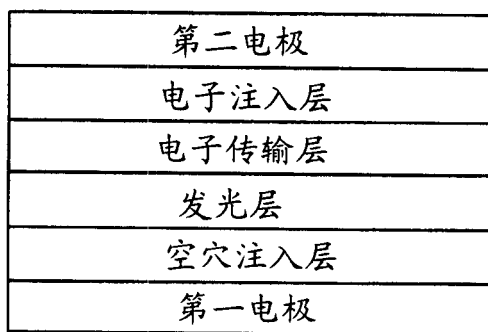 第二电极
电子注入层
电子传输层
发光层
空穴注入层
第一电极